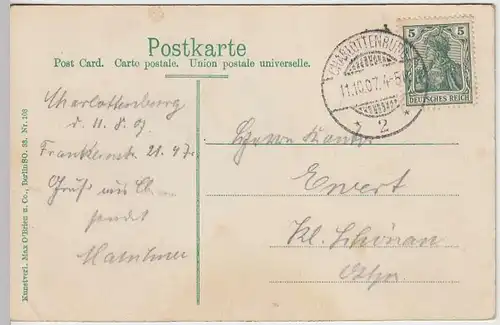 Postkarte
Post Card. Carte postale. Union postale universelle.
CHARLOTTENBURG
11.10.07. 4-5
* 2 *
5 5
DEUTSCHES REICH
Charlottenburg
d. 11. 8. 07
21. 47.
Gruß aus
sendet
Herrn Kantor
Ewert
Kl. Schönau
Ostpr.
Kunstverl. Max O'Brien u. Co., Berlin SO. 33. Nr. 108